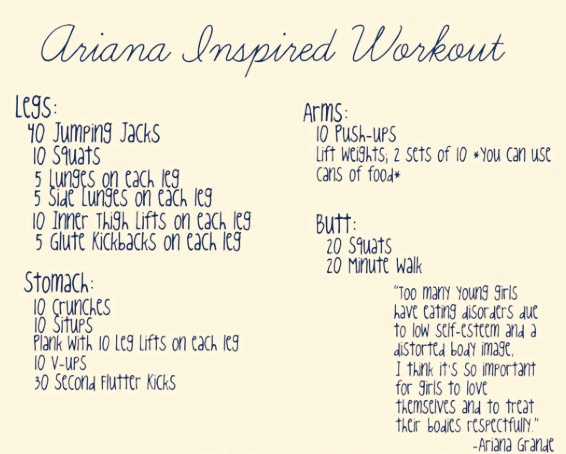 Ariana Inspired Workout
Legs:
40 Jumping Jacks
10 Squats
5 Lunges on each leg
5 Side Lunges on each leg
10 Inner Thigh Lifts on each leg
5 Glute Kickbacks on each leg
Stomach:
10 Crunches
10 Situps
Plank with 10 Leg Lifts on each leg
10 V-ups
30 Second Flutter Kicks
Arms:
10 Push-ups
Lift Weights; 2 sets of 10 *You can use
cans of food*
Butt:
20 Squats
20 Minute Walk
"Too many young girls
have eating disorders due
to low self-esteem and a
distorted body image.
I think it's so important
for girls to love
themselves and to treat
their bodies respectfully."
-Ariana Grande